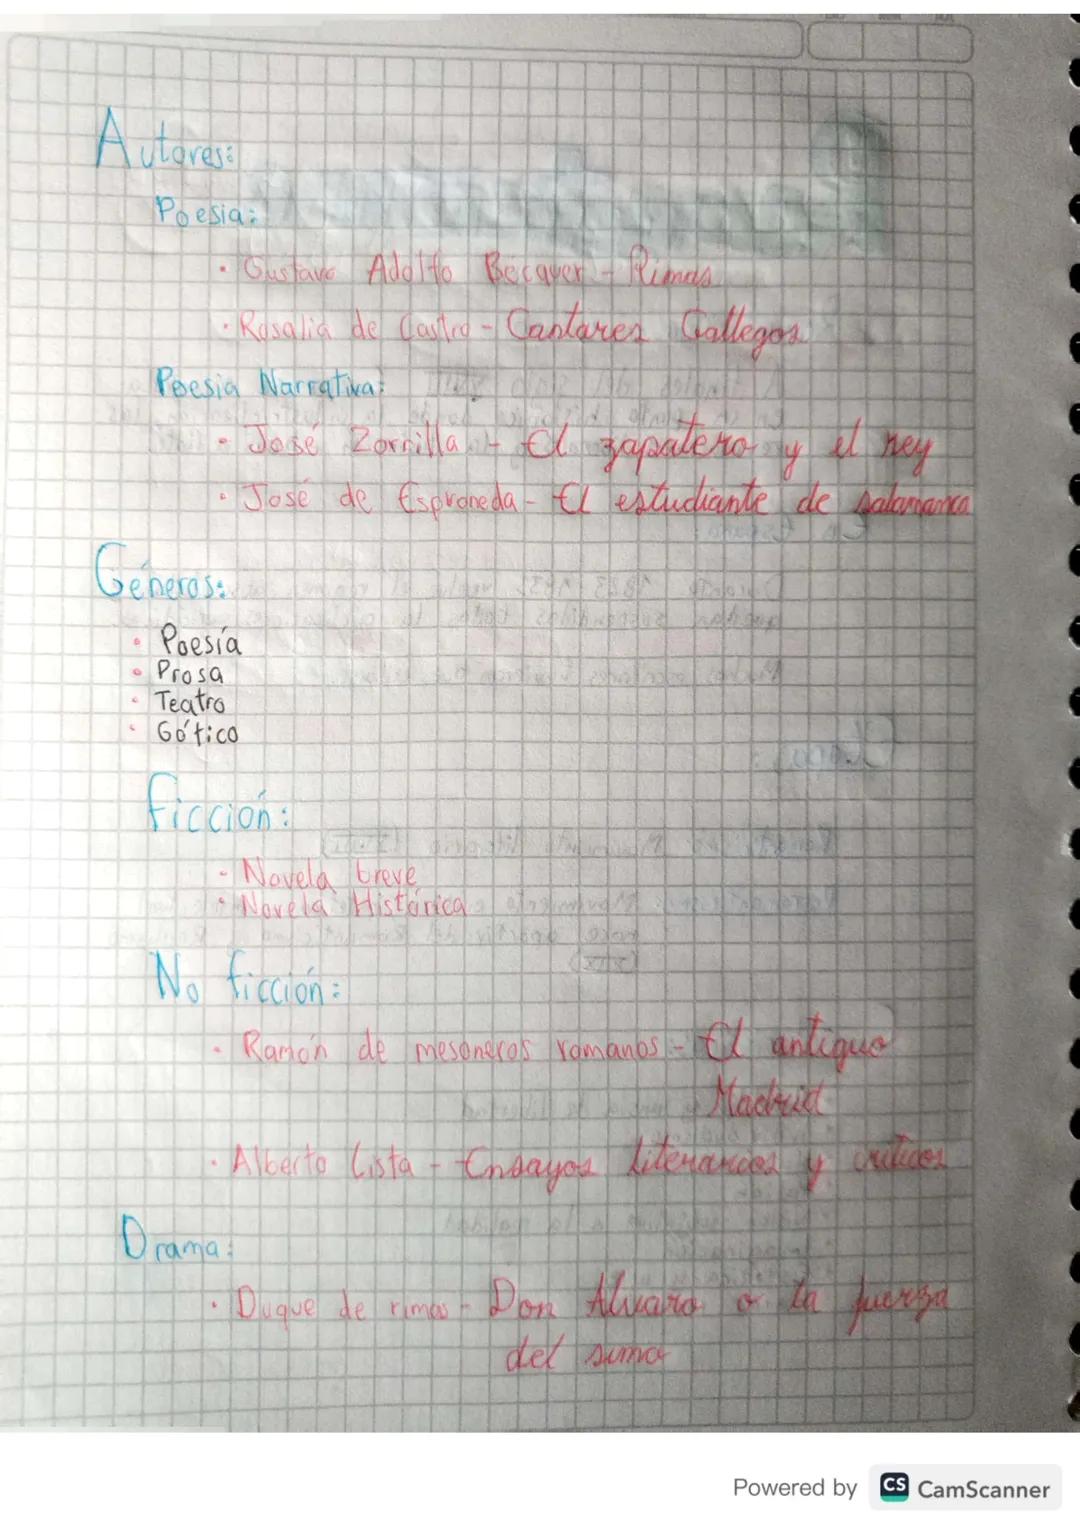 Autores:
Poesia:
• Gustavo Adolfo Becquer - Rimas
• Rosalia de Castro - Cantares Gallegos
Poesia Narrativa:
• José Zorrilla - El zapatero y el rey
• José de Esproneda - El estudiante de salamanca
Géneros:
• Poesía
• Prosa
• Teatro
• Gótico
Ficción:
• Novela breve
• Novela Histórica
No ficción:
• Ramón de mesoneros romanos - El antiguo
Madrid
• Alberto Lista - Ensayos literarios y criticos
Drama:
• Duque de rimas - Don Alvaro o la fuerza
del sino
Powered by CS CamScanner